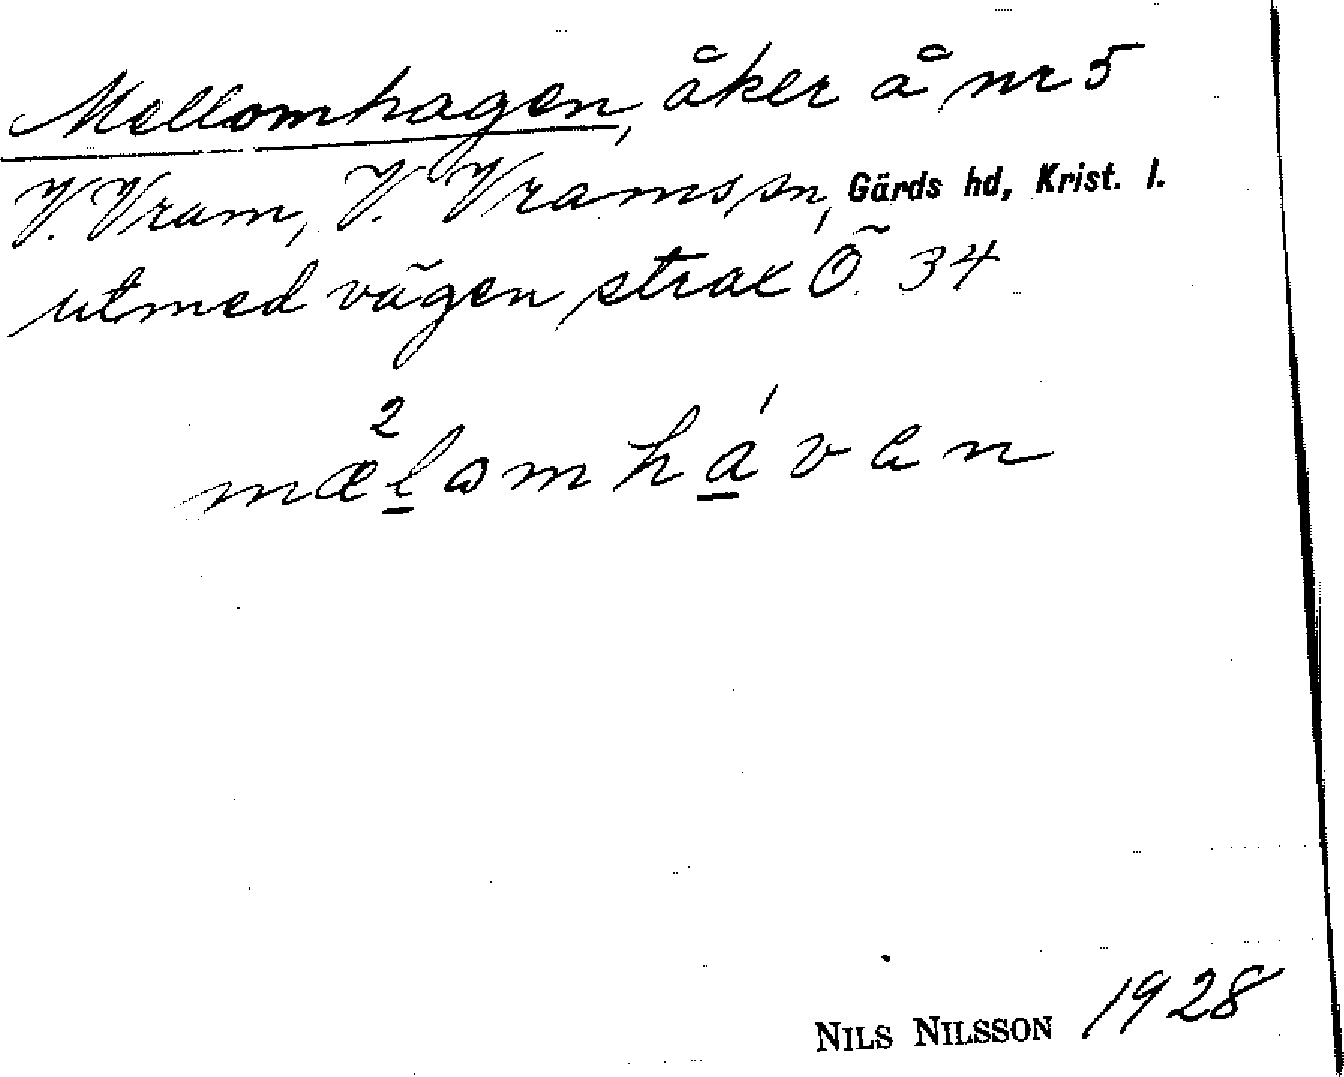 Mellomhagen, åker å nr 5
V. Vram, V. Vrams sn, Gärds hd, Krist. l.
utmed vägen strax Ö 34
mæ²lωmháven
NILS NILSSON 1928